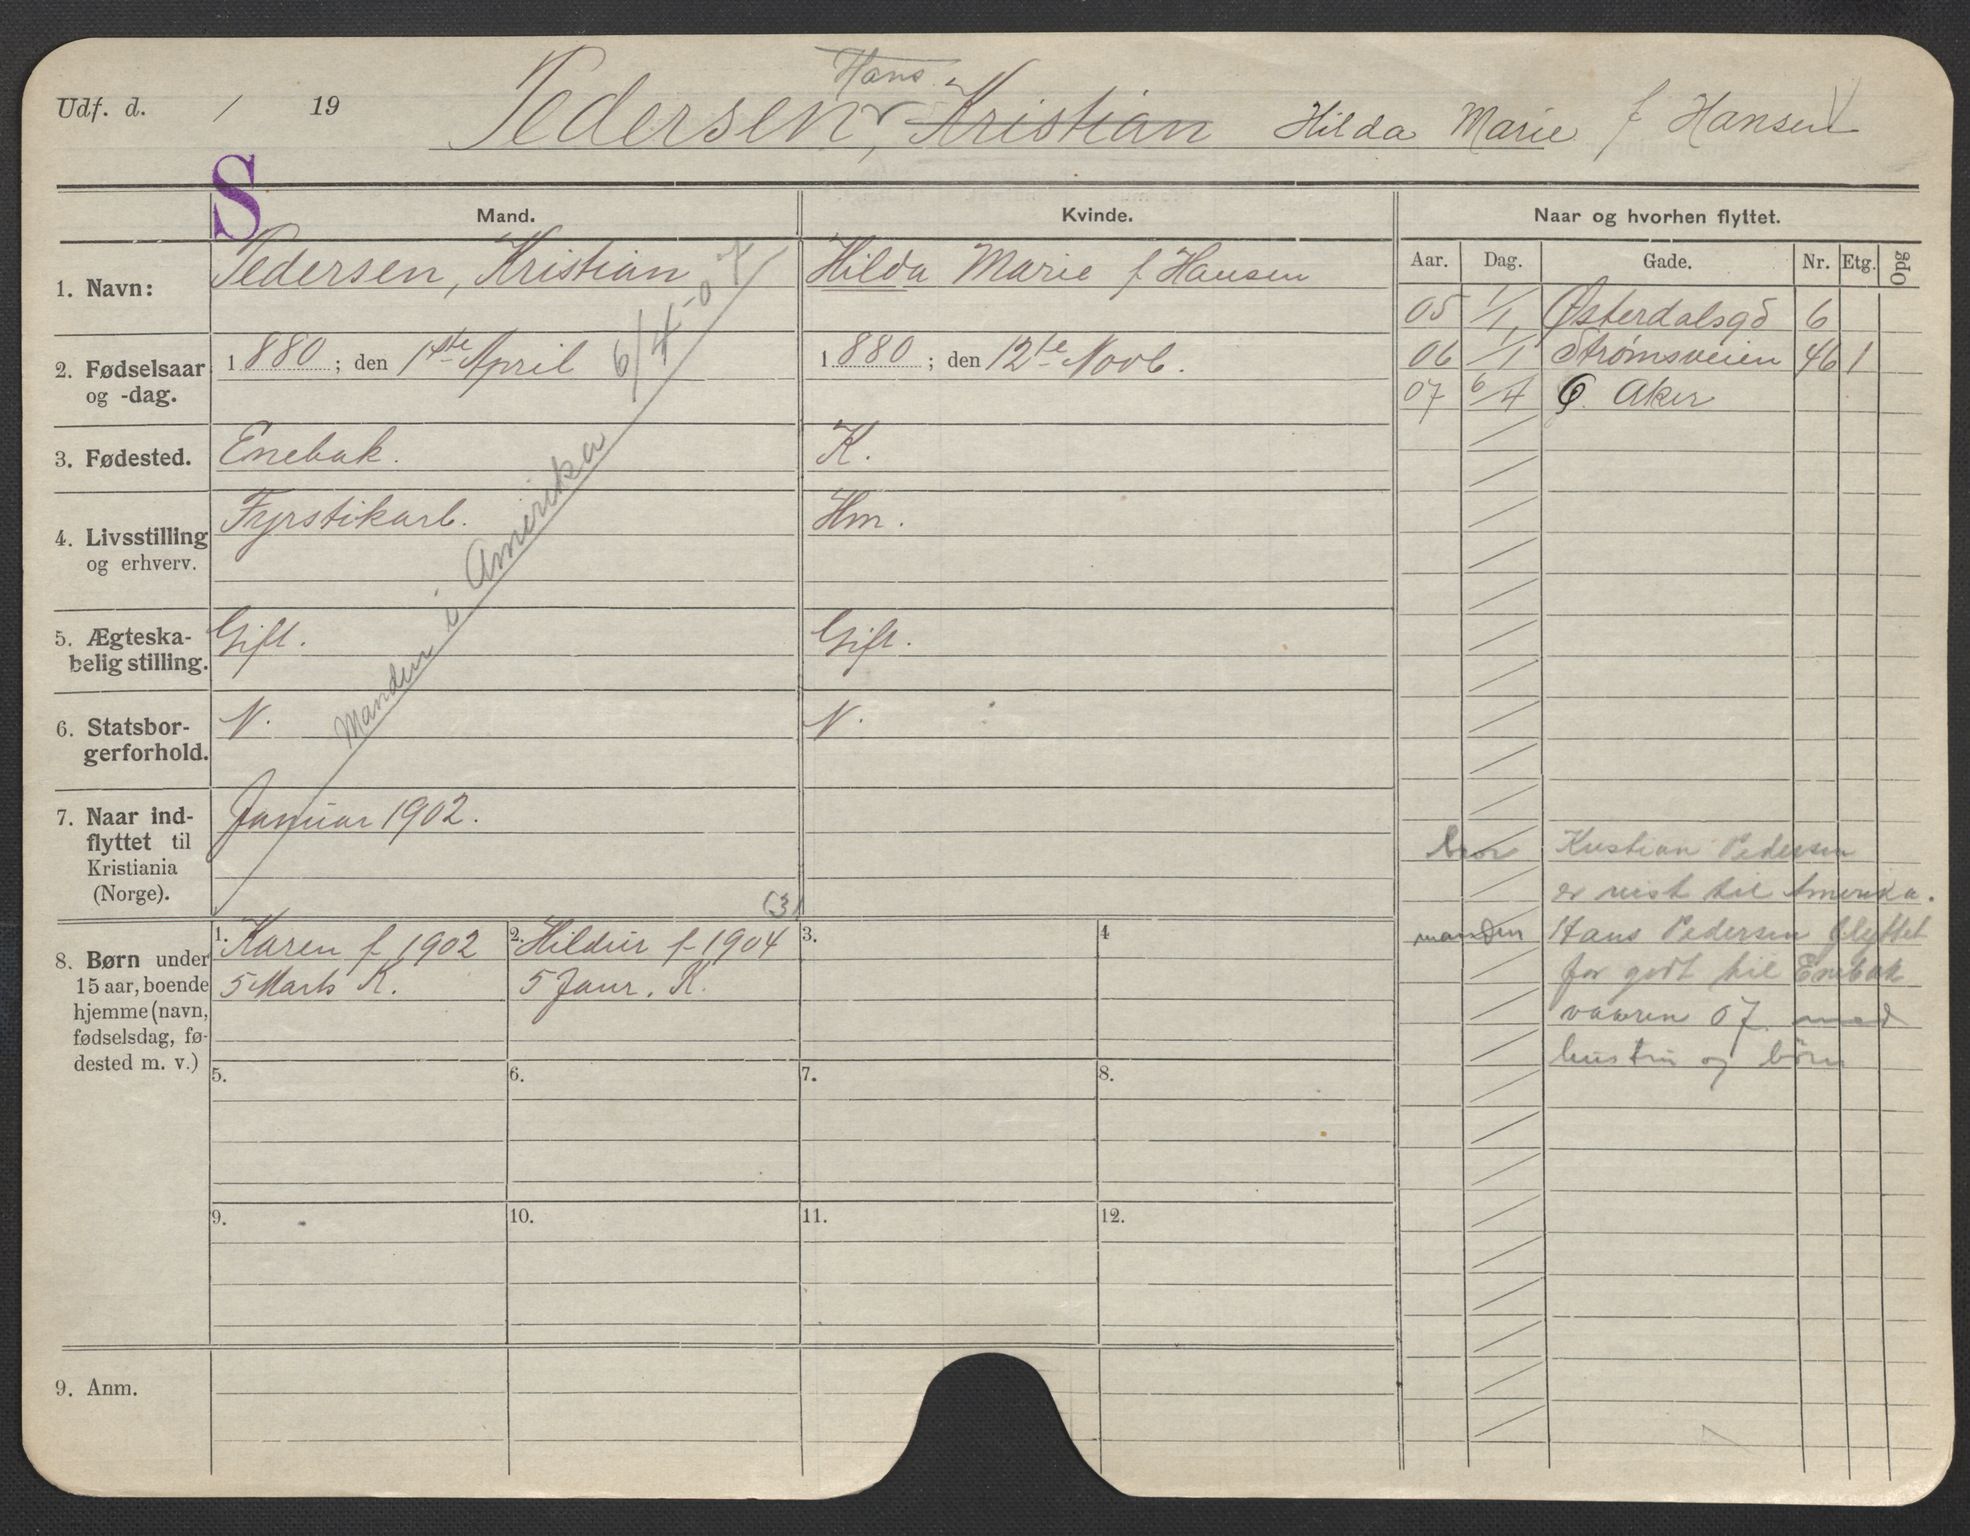 Udf. d. / 19
Hans
Pedersen, Kristian Hilda Marie f Hansen
S
Mand. Kvinde. Naar og hvorhen flyttet.
Aar. Dag. Gade. Nr. Etg. Opg
1. Navn: Pedersen, Kristian Hilda Marie f Hansen
05 1/1 Østerdalsgd 6
2. Fødselsaar og -dag. 1880; den 1ste April 1880; den 12te Novb.
06 1/1 Strømsveien 46 1
07 6/4 Ø. Aker
3. Fødested. Enebak. K.
4. Livsstilling og erhverv. Fyrstikarb. Hm.
5. Ægteska-
belig stilling. Gift. Gift.
6. Statsbor-
gerforhold. N. N.
7. Naar ind-
flyttet til
Kristiania
(Norge). Januar 1902.
Manden i Amerika 6/4-07
(3)
8. Børn under
15 aar, boende
hjemme (navn,
fødselsdag, fø-
dested m. v.)
1. Karen f 1902
5 Marts K.
2. Hildur f 1904
5 Janr. K.
3.
4
5.
6.
7.
8.
9.
10.
11.
12.
bror Kristian Pedersen
er reist til Amerika.
manden Hans Pedersen flyttet
for godt til Enebak
vaaren 07 med
hustru og børn
9. Anm.